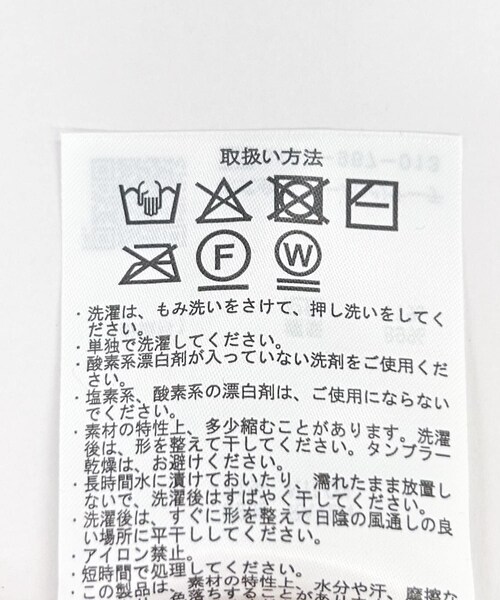 取扱い方法
F
W
・洗濯は、もみ洗いをさけて、押し洗いをしてく
ださい。
・単独で洗濯してください。
・酸素系漂白剤が入っていない洗剤をご使用くだ
さい。
・塩素系、酸素系の漂白剤は、ご使用にならない
でください。
・素材の特性上、多少縮むことがあります。洗濯
後は、形を整えて干してください。タンブラー
乾燥は、お避けください。
・長時間水に漬けておいたり、濡れたまま放置し
ないで、洗濯後はすばやく干してください。
・洗濯後は、すぐに形を整えて日陰の風通しの良
い場所に平干ししてください。
・アイロン禁止。
・短時間で処理してください。
・この製品は、素材の特性上、水分や汗、摩擦な